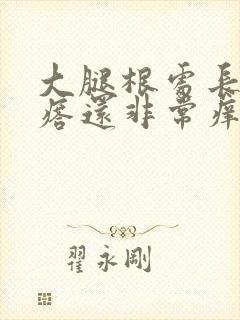 大腿根需長
痞還非常痒
翟永剛